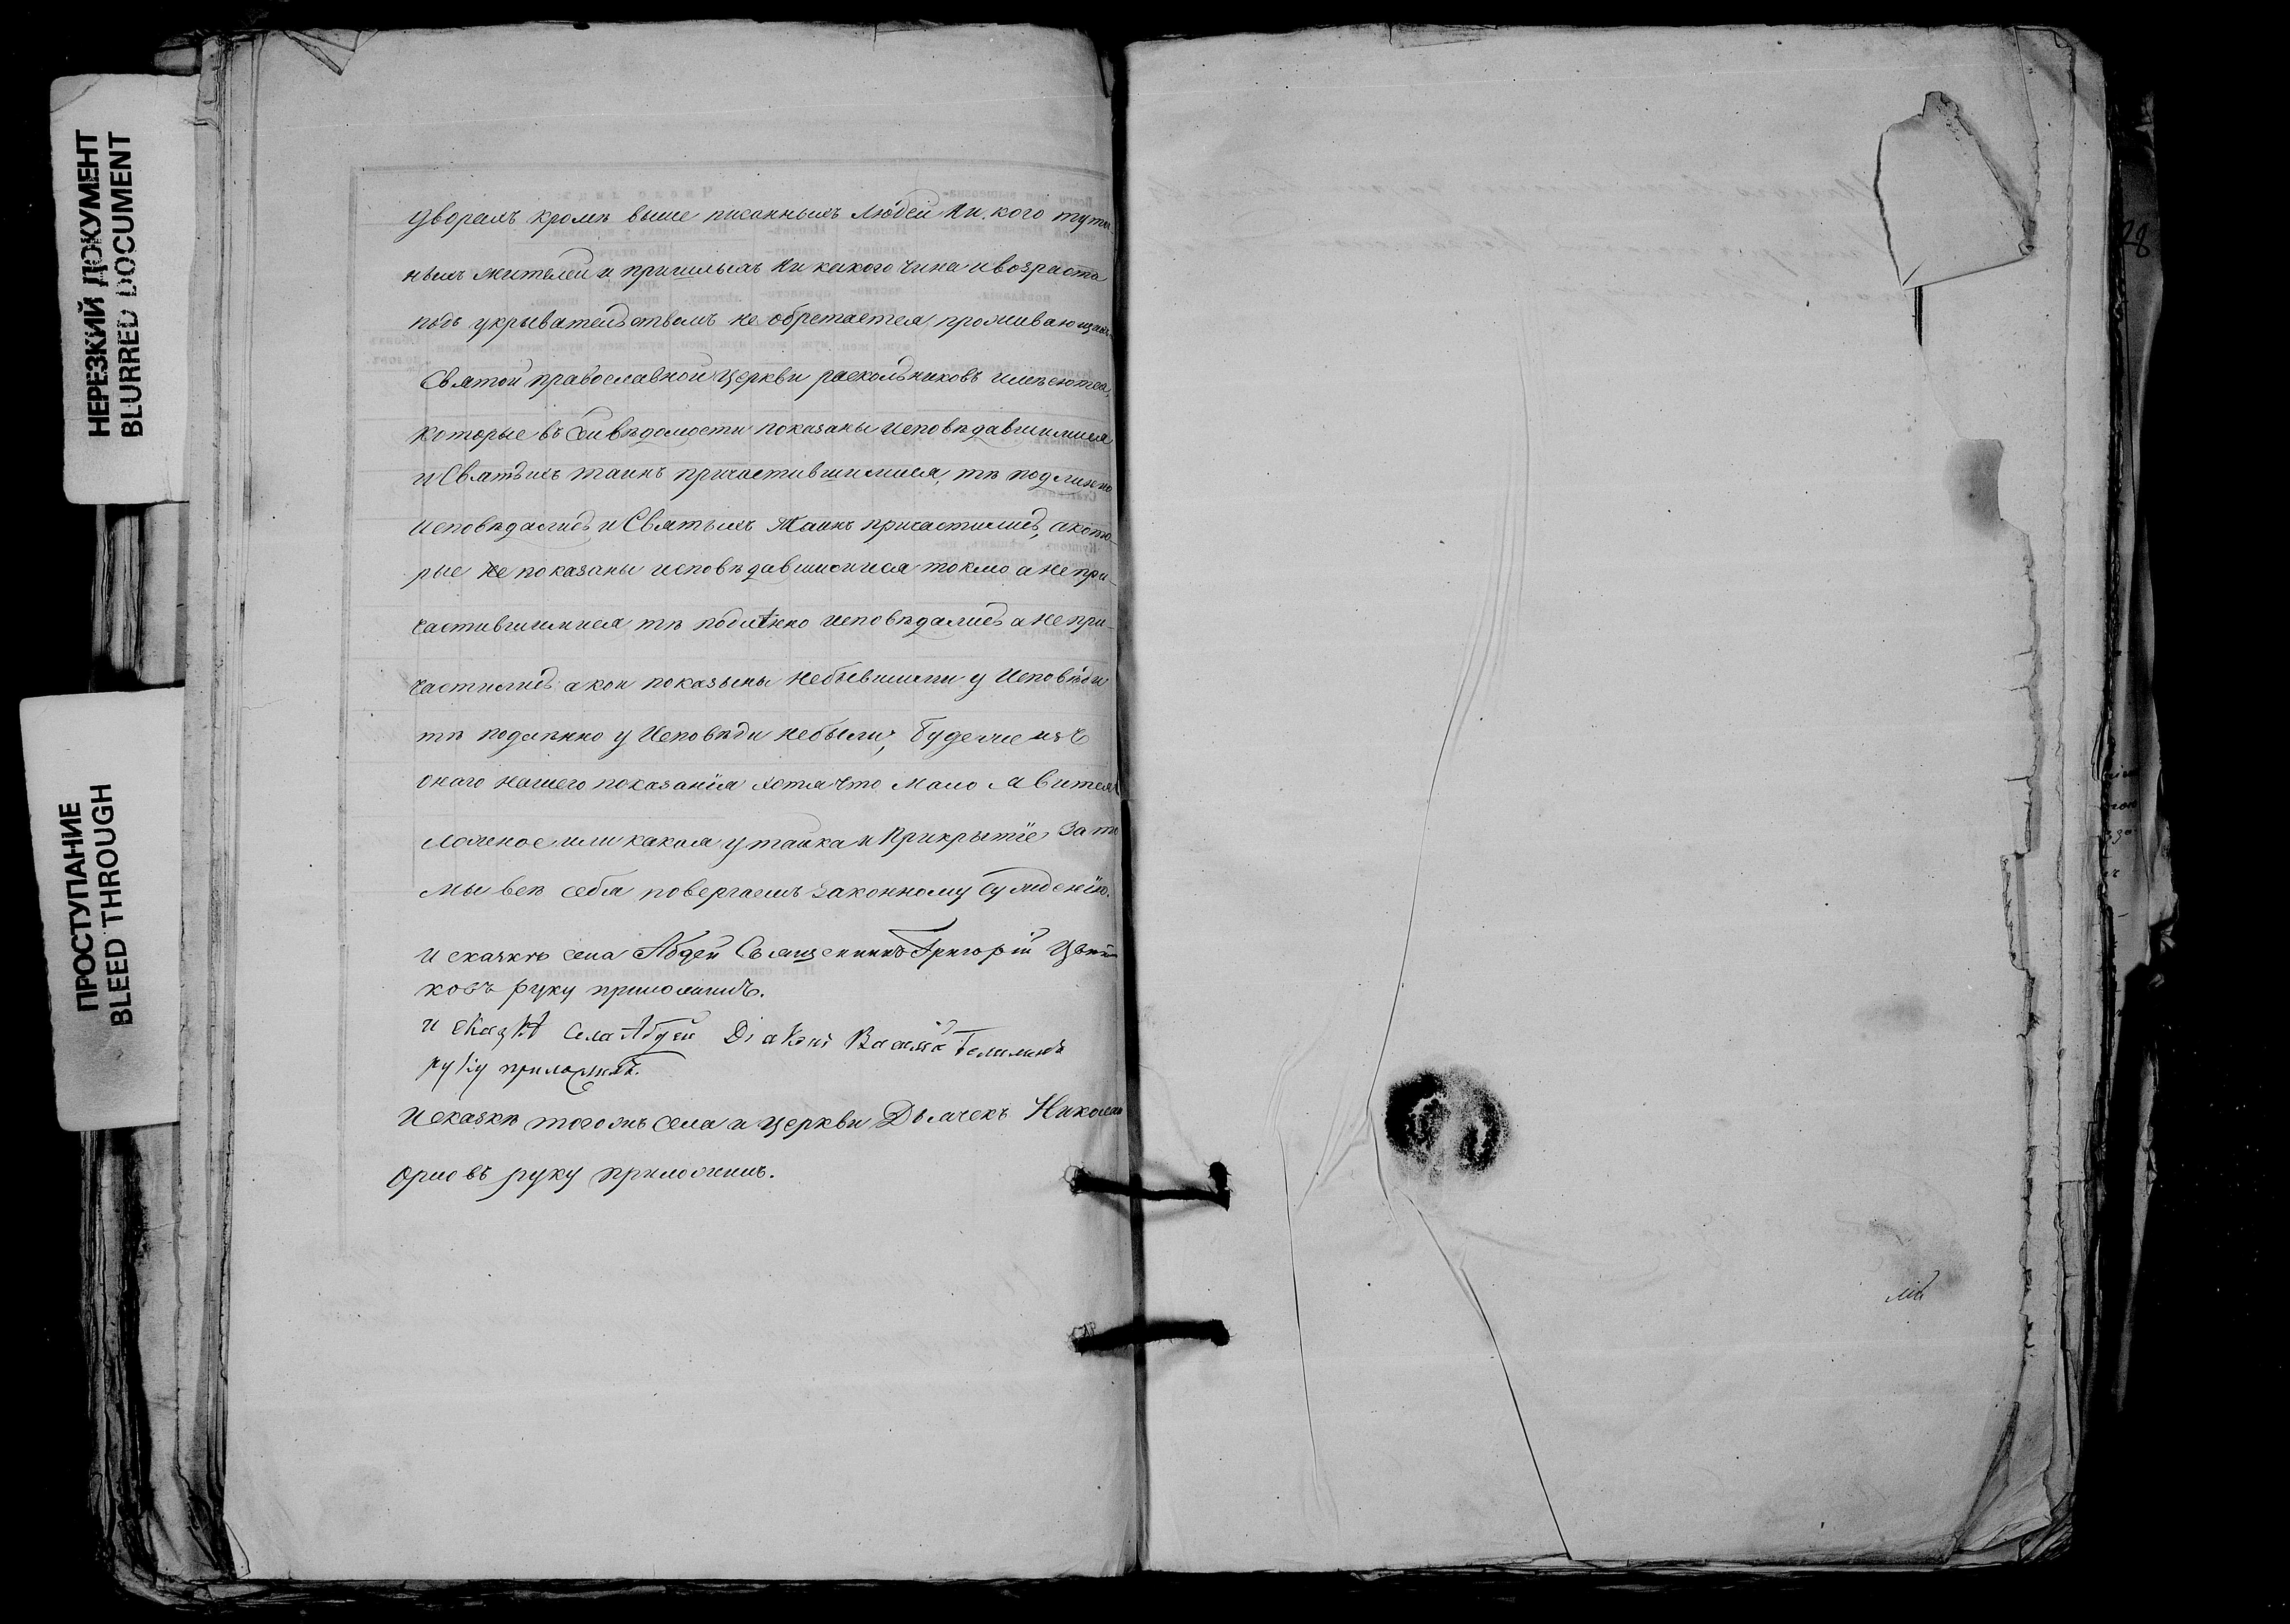 НЕРЕЗКИЙ ДОКУМЕНТ
BLURRED DOCUMENT
ПРОСТУПАНИЕ
BLEED THROUGH
дворахъ кромѣ выше писанныхъ людей ни кого тутош-
ныхъ жителей и пришлыхъ ни какого чина и возраста
подъ укрывательствомъ не обретается, проживающихъ
Святой православной Церкви раскольниковъ имѣются,
которые въ сей вѣдомости показаны исповѣдавшимися
и Святыхъ таинъ причастившимися, тѣ подлинно
исповѣдались и Святыхъ Таинъ причастились, а кото-
рые не показаны исповѣдавшимися токмо а не при-
частившимися тѣ подлѣнно исповѣдались а не при-
частились а кои показаны небывшими у Исповѣди
тѣ подлинно у Исповѣди небыли, буде же изъ
онаго нашего показанія хотя что мало явится
ложное или какая утайка и Прикрытіе За то
мы всѣ себя повергаемъ законному сужденію.
И сказкѣ села Абдей Священникъ Григорій Цвѣт
ковъ руку приложилъ.
и сказкѣ села Абдей Діаконъ Василій
руку приложилъ.
И сказкѣ тогожъ села и церкви Дьячекъ Николай
Орловъ руку приложилъ.
28